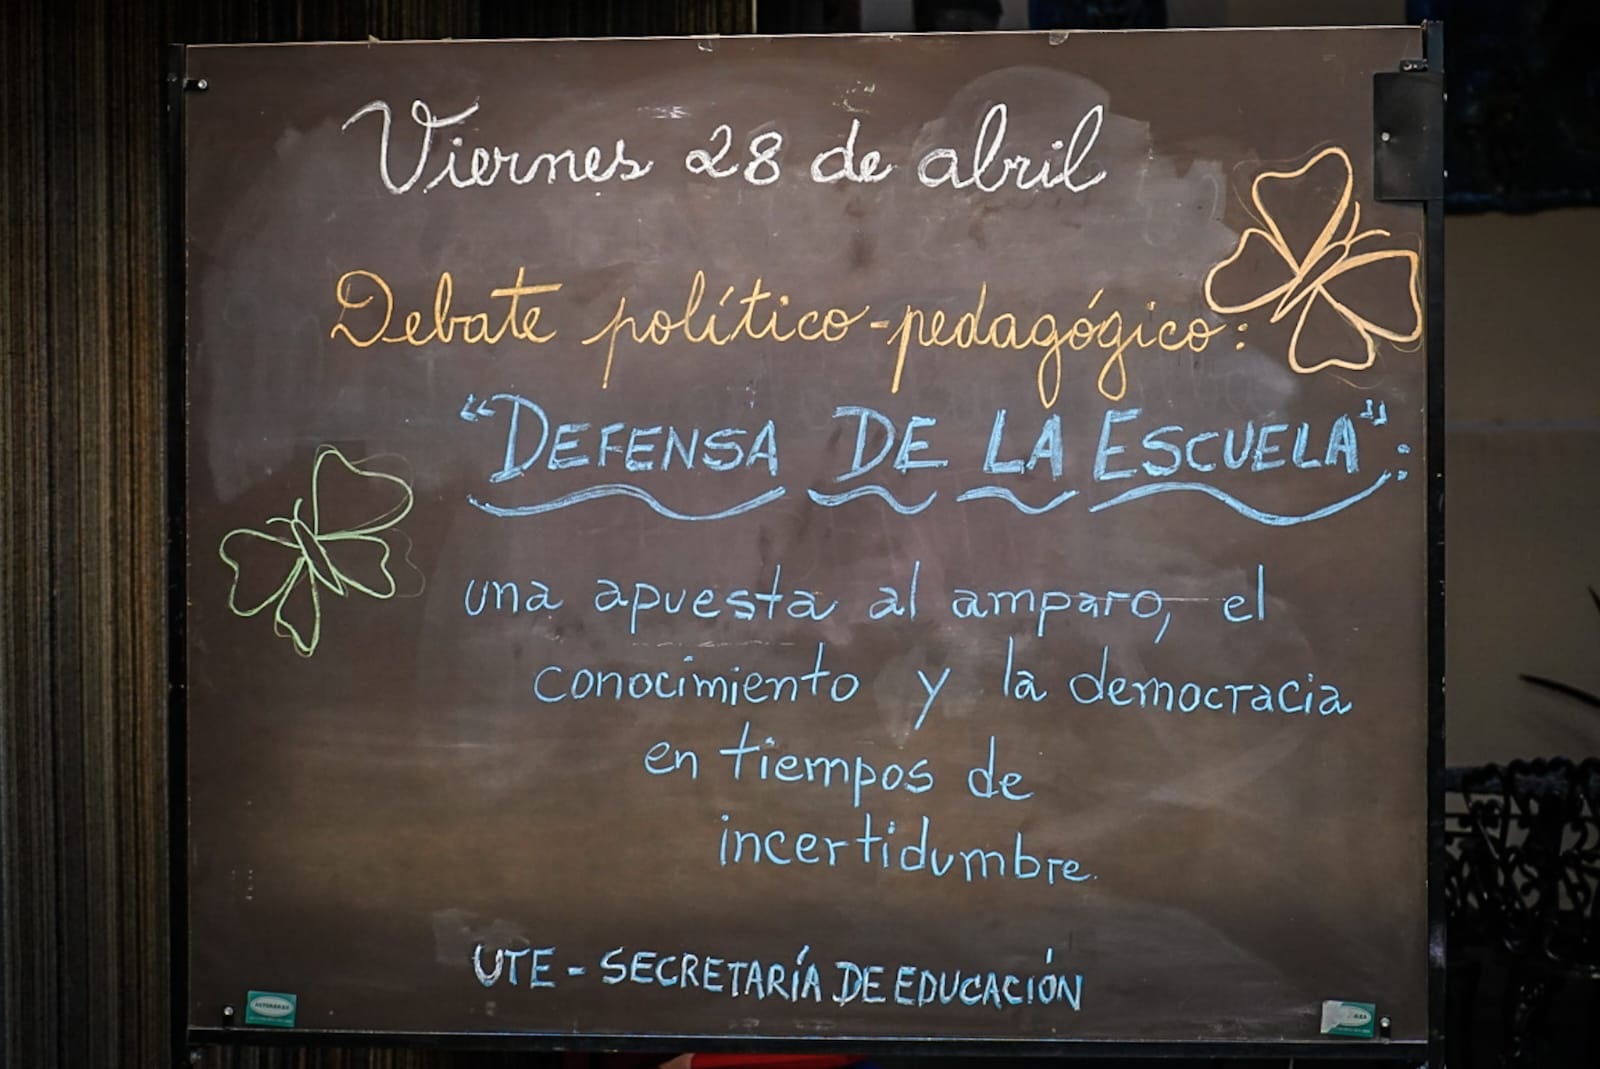 Viernes 28 de abril
Debate político-pedagógico:
"DEFENSA DE LA ESCUELA":
una apuesta al amparo, el
conocimiento y la democracia
en tiempos de
incertidumbre.
UTE - SECRETARÍA DE EDUCACIÓN